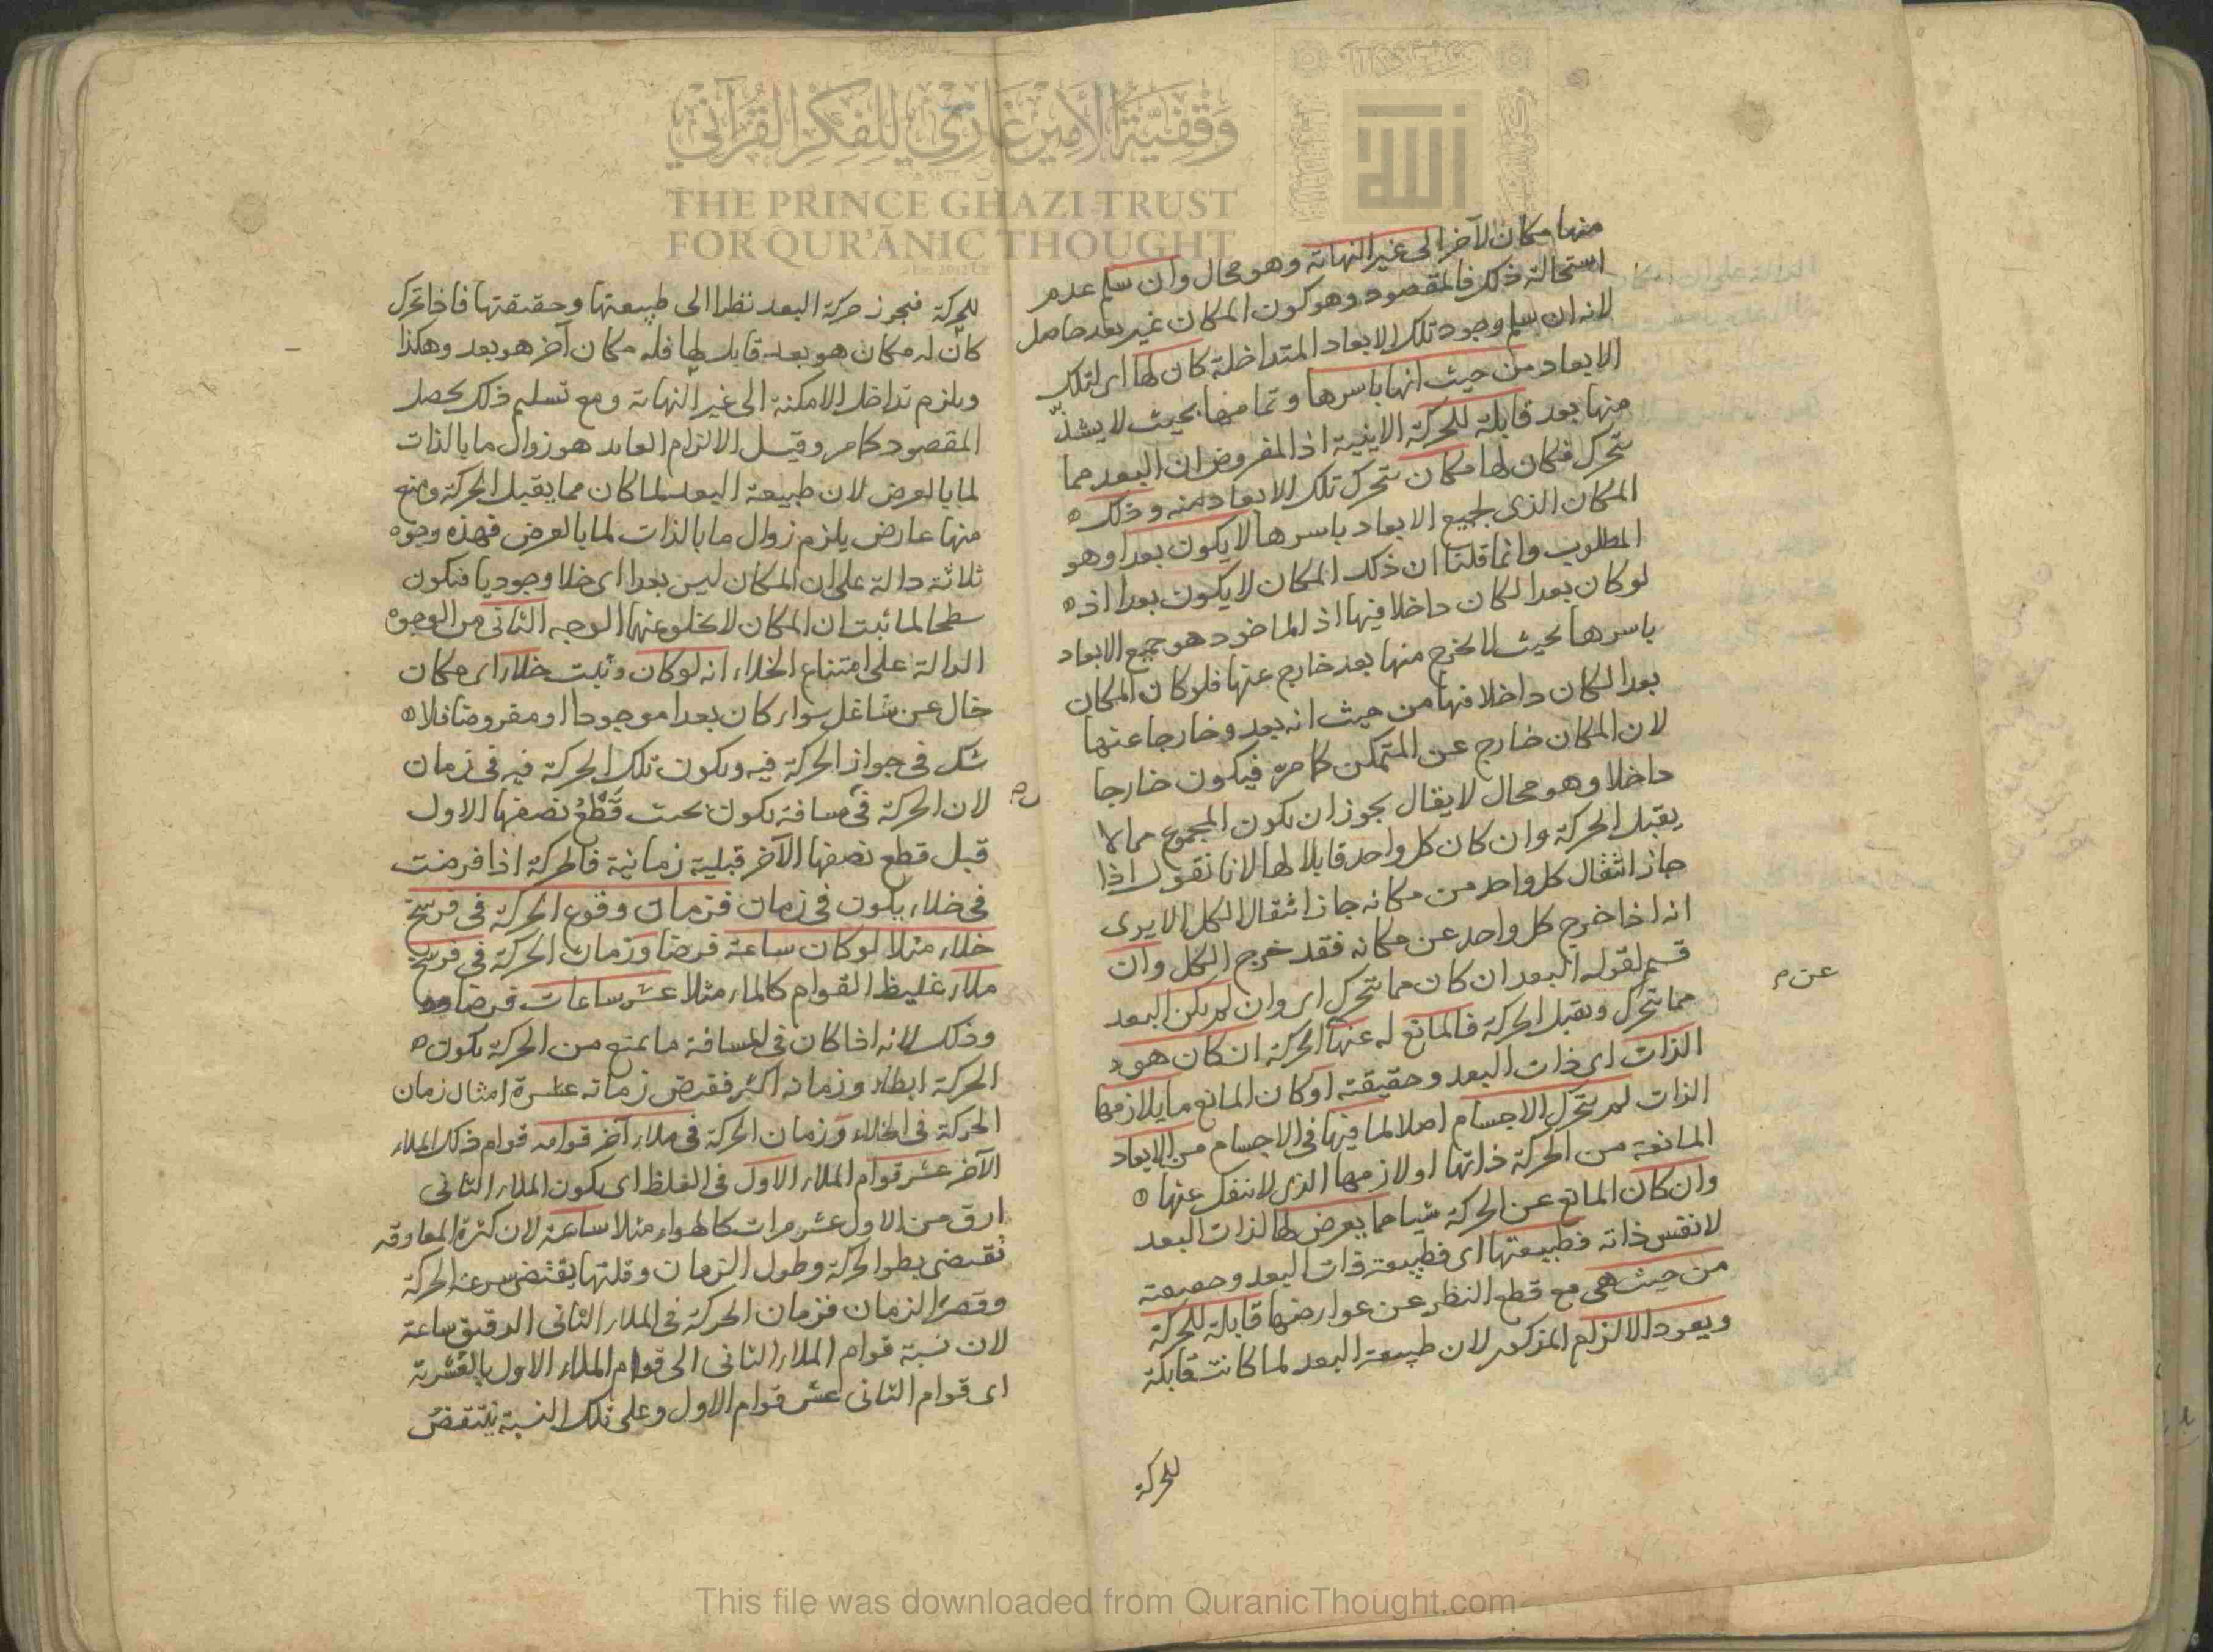 منها مكان لآخر الى غير النهاية وهو محال وان سلم عدم
استحالة ذلك فالمقصود وهو كون المكان غير بعد حاصل
لانه ان سلم وجود تلك الابعاد المتداخلة كان لها اى لتلك
الابعاد من حيث انها باسرها وتمامها بحيث لا يشذّ
منها بعد قابلة للحركة الاينية اذ المفروض ان البعد مما
يتحرك فكان لها مكان تتحرك تلك الابعاد منه وذلك
المكان الذى لجميع الابعاد باسرها لا يكون بعدا وهو
المطلوب وانما قلنا ان ذلك المكان لا يكون بعدا اذ
لو كان بعدا لكان داخلا فيها اذ الماخوذ هو جميع الابعاد
باسرها بحيث لا يخرج منها بعد خارج عنها فلو كان المكان
بعدا لكان داخلا فيها من حيث انه بعد وخارجا عنها
لان المكان خارج عن المتمكن كما مرّ فيكون خارجا
داخلا وهو محال لا يقال يجوز ان يكون المجموع مما لا
يقبل الحركة وان كان كل واحد قابلا لها لانا نقول اذا
جاز انتقال كل واحد من مكانه جاز انتقال الكل الا يرى
انه اذا خرج كل واحد عن مكانه فقد خرج الكل وان
قسيم لقوله البعد ان كان مما يتحرك اى وان لم يكن البعد
مما يتحرك ويقبل الحركة فالمانع له عنها الحركة ان كان هو
الذات اى ذات البعد وحقيقته او كان المانع ما يلازمها
الذات لم يتحرك الاجسام اصلا لما فيها فى الاجسام من الابعاد
المانعة من الحركة ذاتها او لازمها الذى لا ينفك عنها
وان كان المانع عن الحركة شيا مما يعرض لها لذات البعد
لا نفس ذاته فطبيعتها اى فطبيعة ذات البعد وحقيقته
من حيث هى مع قطع النظر عن عوارضها قابلة للحركة
ويعود الالزام المذكور لان طبيعة البعد لما كانت قابلة
للحركة
عن م
للحركة فيجوز حركة البعد نظرا الى طبيعتها وحقيقتها فاذا تحرك
كان له مكان هو بعد قابل لها فله مكان آخر هو بعد وهكذا
ويلزم تداخل الامكنة الى غير النهاية ومع تسليم ذلك يحصل
المقصود كما مر وقيل الالزام العايد هو زوال ما بالذات
لما بالعرض لان طبيعة البعد لما كان مما يقبل الحركة ومنع
منها عارض يلزم زوال ما بالذات لما بالعرض فهذه وجوه
ثلاثة دالة على ان المكان ليس بعدا اى خلا وجوديا فيكون
سطحا لما ثبت ان المكان لا يخلو عنها الوجه الثانى من الوجوه
الدالة على امتناع الخلاء انه لو كان وثبت خلاء اى مكان
خال عن شاغل سواء كان بعدا موجودا او مفروضا فلا
شك فى جواز الحركة فيه ويكون تلك الحركة فيه فى زمان
لان الحركة فى مسافة يكون بحيث قَطْعُ نصفها الاول
قبل قطع نصفها الآخر قبلية زمانية فالحركة اذا فرضت
فى خلاء يكون فى زمان فزمان وقوع الحركة فى فرسخ
خلاء مثلا لو كان ساعة فرضا وزمان الحركة فى فرسخ
ملاء غليظ القوام كالماء مثلا عشر ساعات فرضا
وذلك لانه اذا كان فى المسافة ما يمنع من الحركة يكون
الحركة ابطاء وزمانه اكثر فقرض زمانه عشرة امثال زمان
الحركة فى الخلاء وزمان الحركة فى ملاء آخر قوامه قوام ذلك الملاء
الآخر عشر قوام الملاء الاول فى الغلظ اى يكون الملاء الثانى
ارق من الاول عشر مرات كالهواء مثلا ساعة لان كثرة المعاوقة
تقتضى بطوء الحركة وطول الزمان وقلتها يقتضى سرعة الحركة
وقصر الزمان فزمان الحركة فى الملاء الثانى الدقيق ساعة
لان نسبة قوام الملاء الثانى الى قوام الملاء الاول بالعُشرية
اى قوام الثانى عشر قوام الاول وعلى تلك النسبة ينتقض
وَقْفِيَّةُ الأَمِيرْ غَازِي لِلْفِكْرِ القُرْآنِي
THE PRINCE GHAZI TRUST
FOR QUR'ĀNIC THOUGHT
This file was downloaded from QuranicThought.com